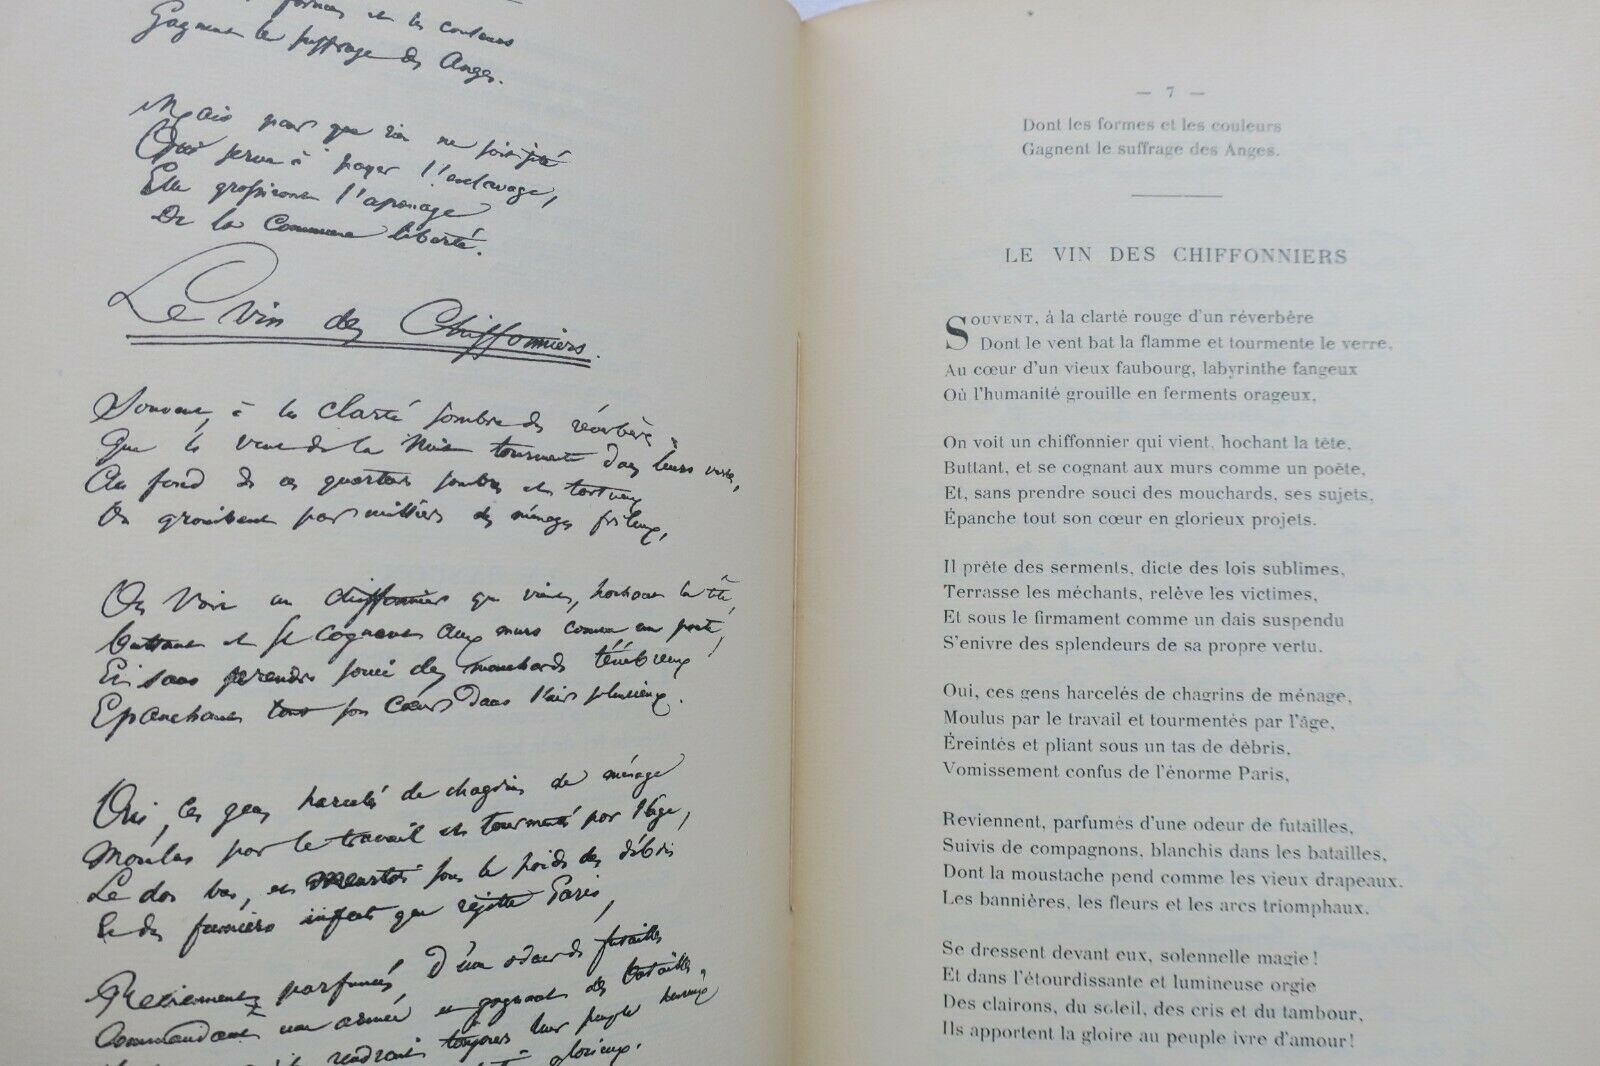 formes et les couleurs
Gagnent le suffrage des Anges.
Mais pour que rien ne soit jeté
Qui serve à payer l'esclavage,
Elles grossiront l'apanage
De la Commune liberté.
Le Vin des Chiffonniers.
Souvent, à la clarté sombre des réverbères,
Que le vent de la Nuit tourmente dans leurs verres,
Au fond de ces quartiers sombres et tortueux
Où grouillent par milliers des ménages frileux,
On voit un chiffonnier qui vient, hochant la tête,
buttant et se cognant aux murs comme un poète,
Et sans prendre souci des mouchards ténébreux
Epanchant tout son cœur dans l'air pluvieux.
Oui, ces gens harcelés de chagrins de ménage
Moulus par le travail et tourmentés par l'âge,
Le dos bas, et sous le poids des débris
Et des fumiers infects que rejette Paris,
Reviennent parfumés d'une odeur de futailles
Commandant une armée et gagnant des batailles,
rendront toujours leur peuple heureux
glorieux.
— 7 —
Dont les formes et les couleurs
Gagnent le suffrage des Anges.
LE VIN DES CHIFFONNIERS
SOUVENT, à la clarté rouge d'un réverbère
Dont le vent bat la flamme et tourmente le verre,
Au cœur d'un vieux faubourg, labyrinthe fangeux
Où l'humanité grouille en ferments orageux,
On voit un chiffonnier qui vient, hochant la tête,
Buttant, et se cognant aux murs comme un poète,
Et, sans prendre souci des mouchards, ses sujets,
Épanche tout son cœur en glorieux projets.
Il prête des serments, dicte des lois sublimes,
Terrasse les méchants, relève les victimes,
Et sous le firmament comme un dais suspendu
S'enivre des splendeurs de sa propre vertu.
Oui, ces gens harcelés de chagrins de ménage,
Moulus par le travail et tourmentés par l'âge,
Éreintés et pliant sous un tas de débris,
Vomissement confus de l'énorme Paris,
Reviennent, parfumés d'une odeur de futailles,
Suivis de compagnons, blanchis dans les batailles,
Dont la moustache pend comme les vieux drapeaux.
Les bannières, les fleurs et les arcs triomphaux.
Se dressent devant eux, solennelle magie !
Et dans l'étourdissante et lumineuse orgie
Des clairons, du soleil, des cris et du tambour,
Ils apportent la gloire au peuple ivre d'amour !